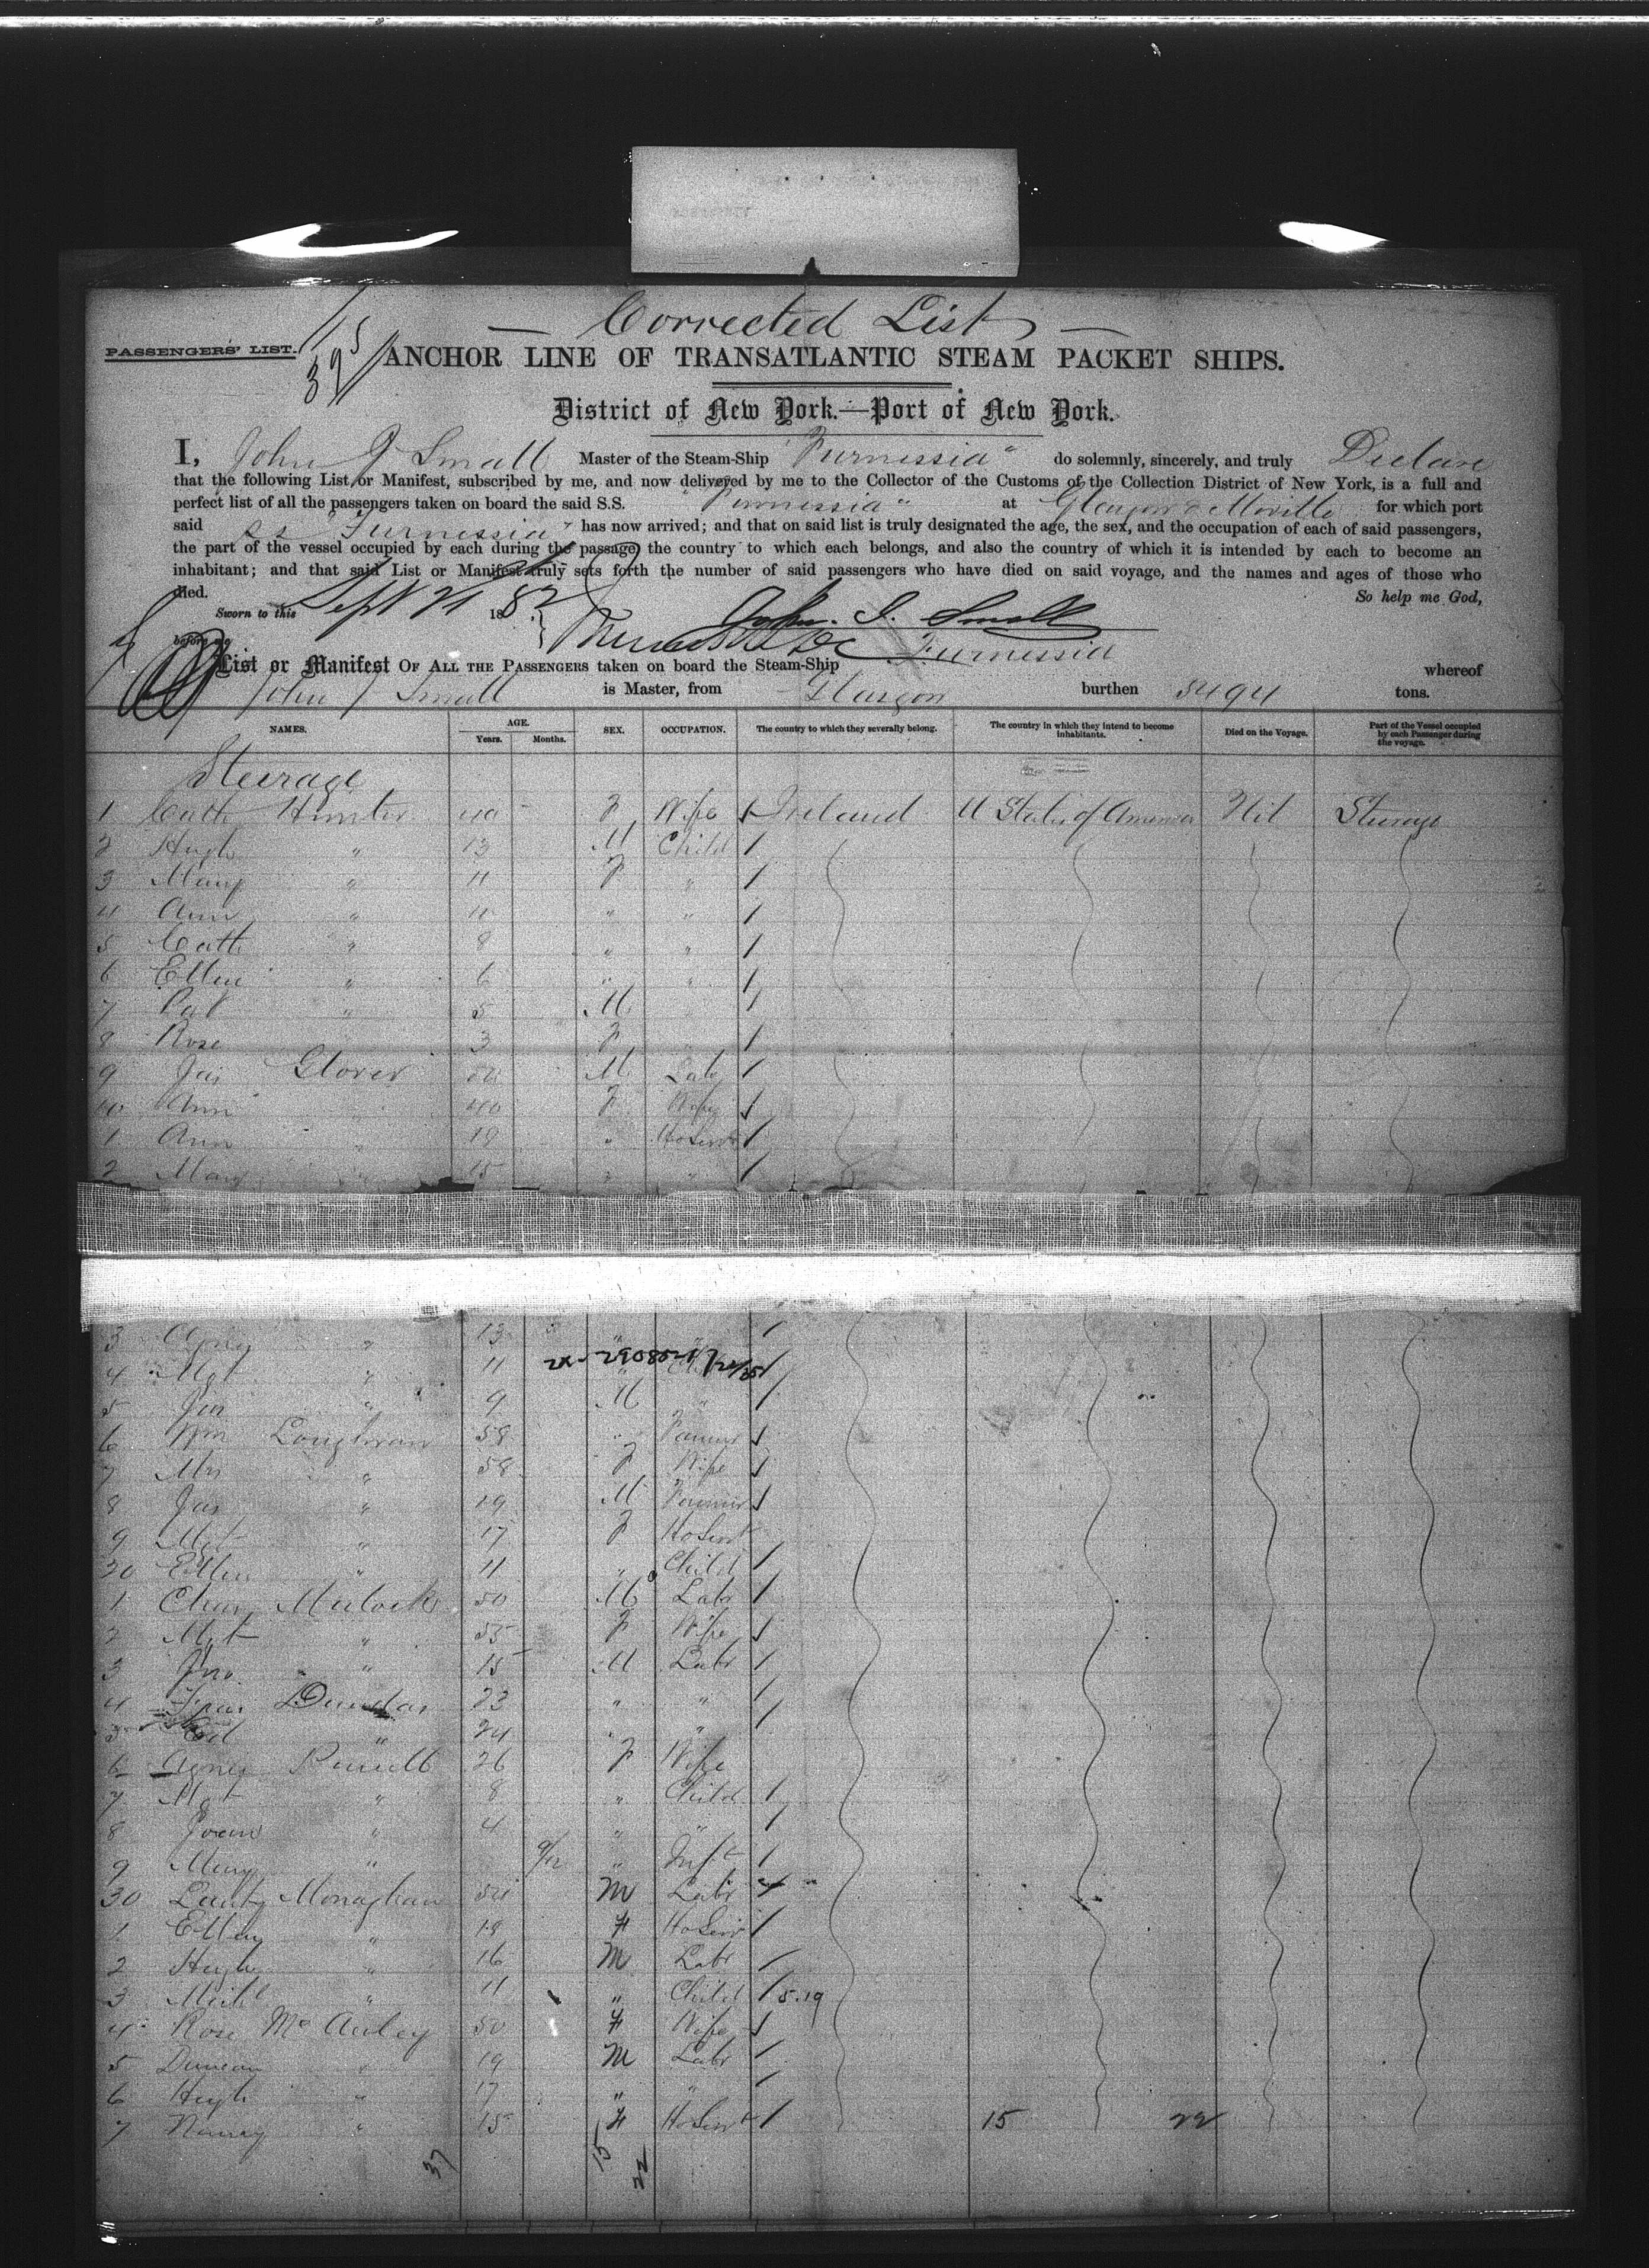 Corrected List
PASSENGERS' LIST.
395
ANCHOR LINE OF TRANSATLANTIC STEAM PACKET SHIPS.
District of New York.—Port of New York.
I, John J Small Master of the Steam-Ship "Furnessia" do solemnly, sincerely, and truly Declare
that the following List or Manifest, subscribed by me, and now delivered by me to the Collector of the Customs of the Collection District of New York, is a full and
perfect list of all the passengers taken on board the said S.S. "Furnessia" at Glasgow & Moville for which port
said S.S. "Furnessia" has now arrived; and that on said list is truly designated the age, the sex, and the occupation of each of said passengers,
the part of the vessel occupied by each during the passage, the country to which each belongs, and also the country of which it is intended by each to become an
inhabitant; and that said List or Manifest truly sets forth the number of said passengers who have died on said voyage, and the names and ages of those who
died. So help me God,
Sworn to this Sept 21 1882 John J. Small
before me
List or Manifest OF ALL THE PASSENGERS taken on board the Steam-Ship Furnessia whereof
John J Small is Master, from Glasgow burthen 5494 tons.
NAMES. AGE. Years. Months. SEX. OCCUPATION. The country to which they severally belong. The country in which they intend to become inhabitants. Died on the Voyage. Part of the Vessel occupied by each Passenger during the voyage.
Steerage
1 Cath Hunter 40 F Wife Ireland U States of America Nil Steerage
2 Hugh " 13 M Child
3 Mary " 11 F "
4 Ann " 11 " "
5 Cath " 8 " "
6 Ellen " 6 " "
7 Pat " 5 M
8 Rose 3 F "
9 Jas Glover M Lab
10 Ann " 40 F Wife
1 Ann " 19 " HoServt
2 Mary " 15 " "
3 " 13 " "
4 Mgt " 11
2X-290885-1/24/55
5 Jas " 9 M "
6 Wm Loughran 58 " Farmer
7 Mrs " 58 F Wife
8 Jas " 19 M Farmer
9 Mgt " 17 F HoServt
20 Ellen " 11 " Child
1 50 M Labr
2 Mgt " 55 F Wife
3 Jno " 15 M Labr
4 Dundas 23 " "
5 " 24 " "
6 Agnes 26 F Wife
7 Mgt " 8 " Child
8 " 4 " "
9 Mary " 9/12 " Inft
30 Monaghan M Labr
1 Ellen " 18 F HoServt
2 Hugh " 16 M Labr
3 " 11 " Child 5.19
4 Rose McAuley 50 F Wife
5 Duncan " 19 M Labr
6 Hugh " 17 " "
7 Nancy " 15 F HoServt 15 22
37 15 22